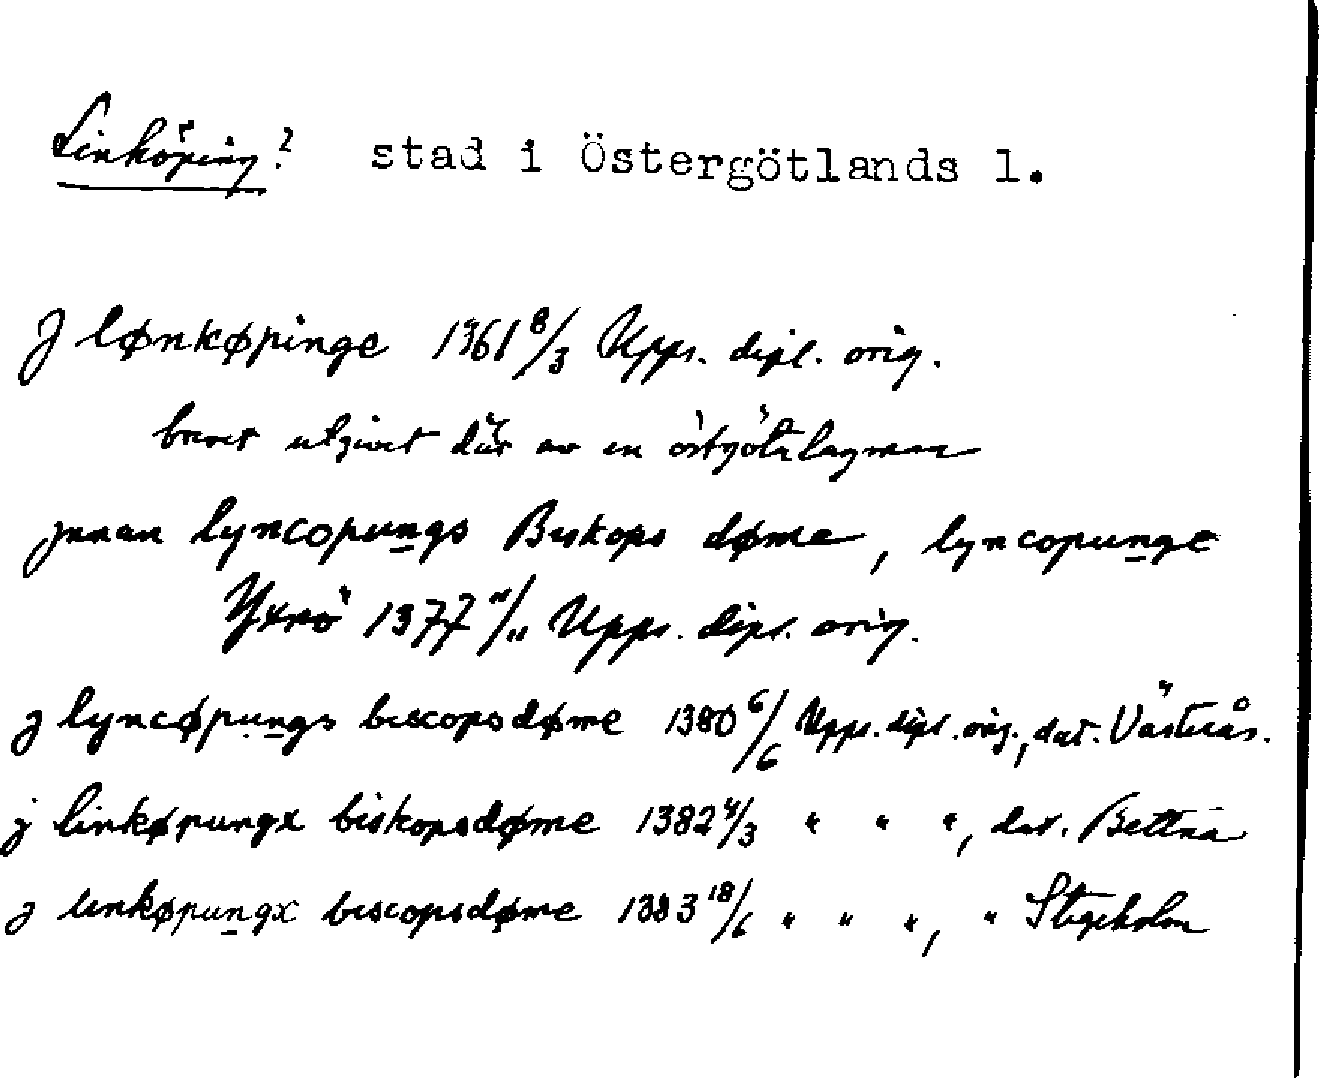 Linköping? stad i Östergötlands l.
J lønkøpinge 1361 8/3 Upps. dipl. orig.
brevet utgivet där av en östgötalagman
jnnan lyncopungs Biskops døme, lyncopunge
Yxnö 1377 11/11 Upps. dipl. orig.
j lyncøpungs biscopsdøme 1380 6/6 Upps. dipl. orig., dat. Västerås.
j linkøpungx biskopsdøme 1382 4/3 " " ", dat. Bettna
j linkøpungx biscopsdøme 1383 18/6 " " ", " Stegeholm